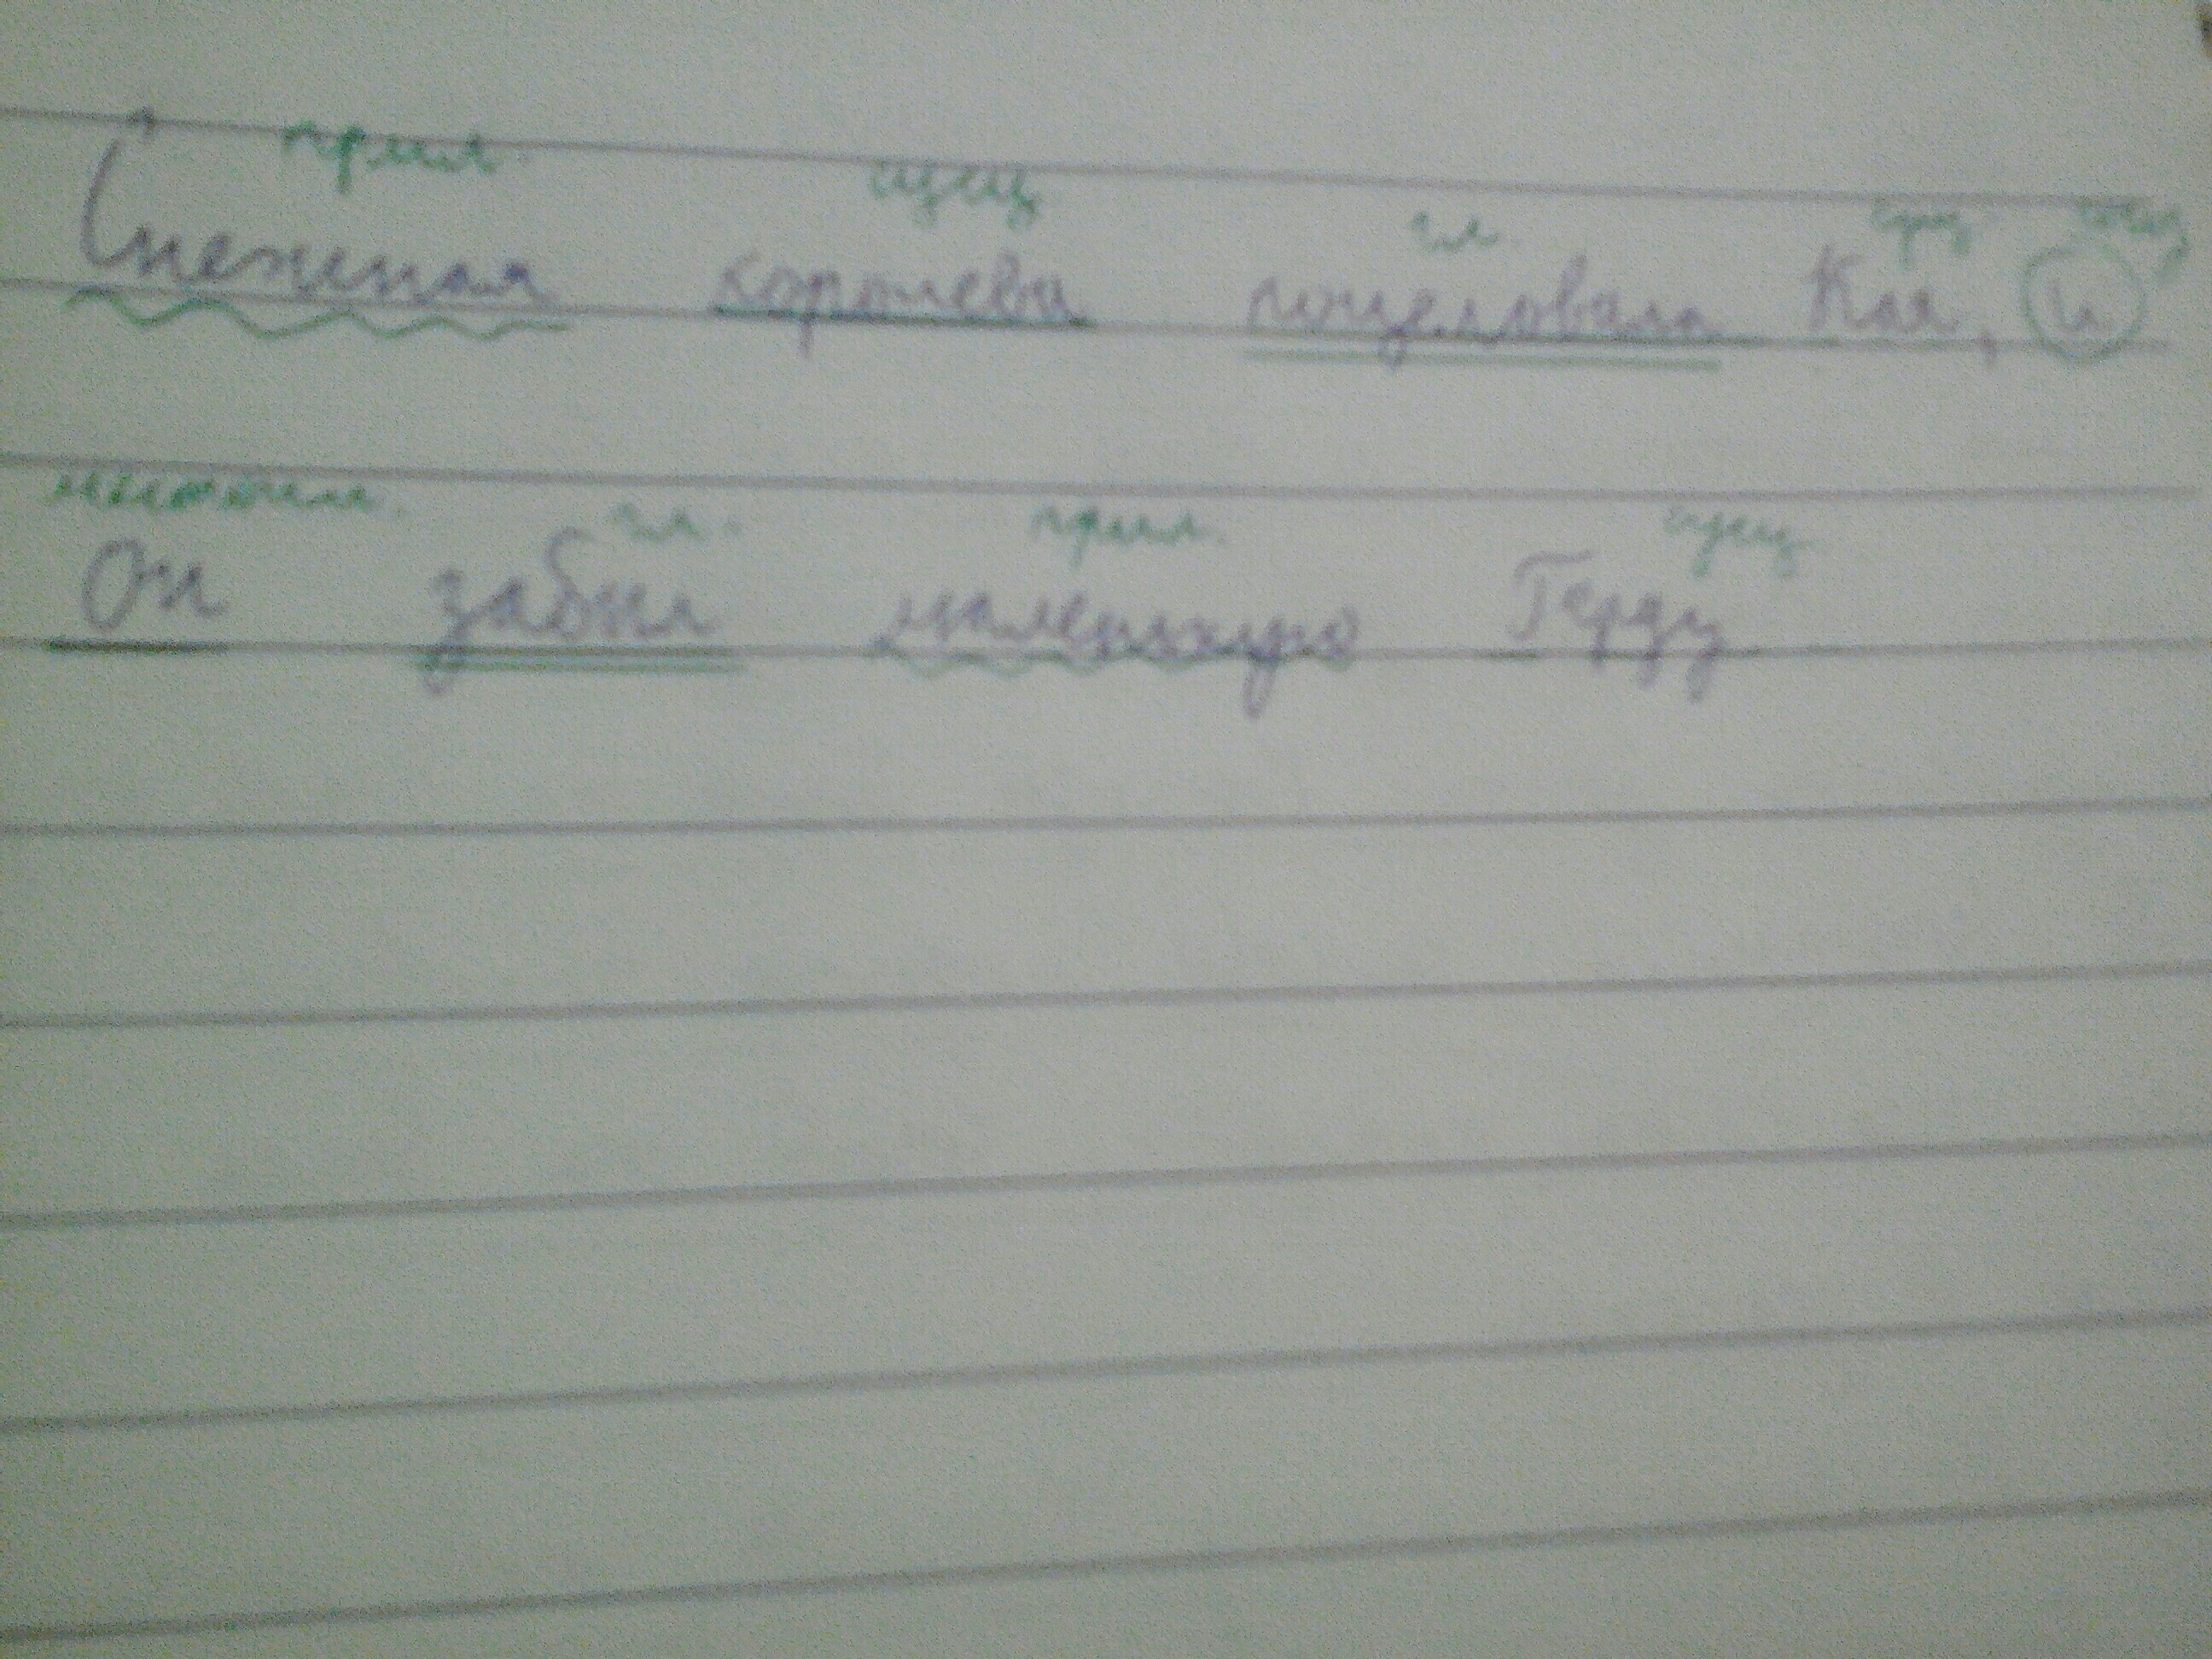 прил. сущ гл. сущ. союз
Снежная королева поцеловала Кая, и
местоим. гл. прил. сущ.
Он забыл маленькую Герду